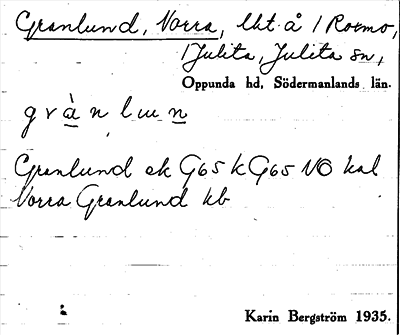 Granlund, Norra, lht å 1 Rosmo,
1 Julita, Julita sn,
Oppunda hd, Södermanlands län.
g r à n l u n
Granlund ek G65 k G65 NO kal
Norra Granlund kb
Karin Bergström 1935.